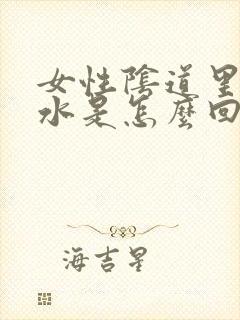 女性陰道里
水是怎麼回
海吉星